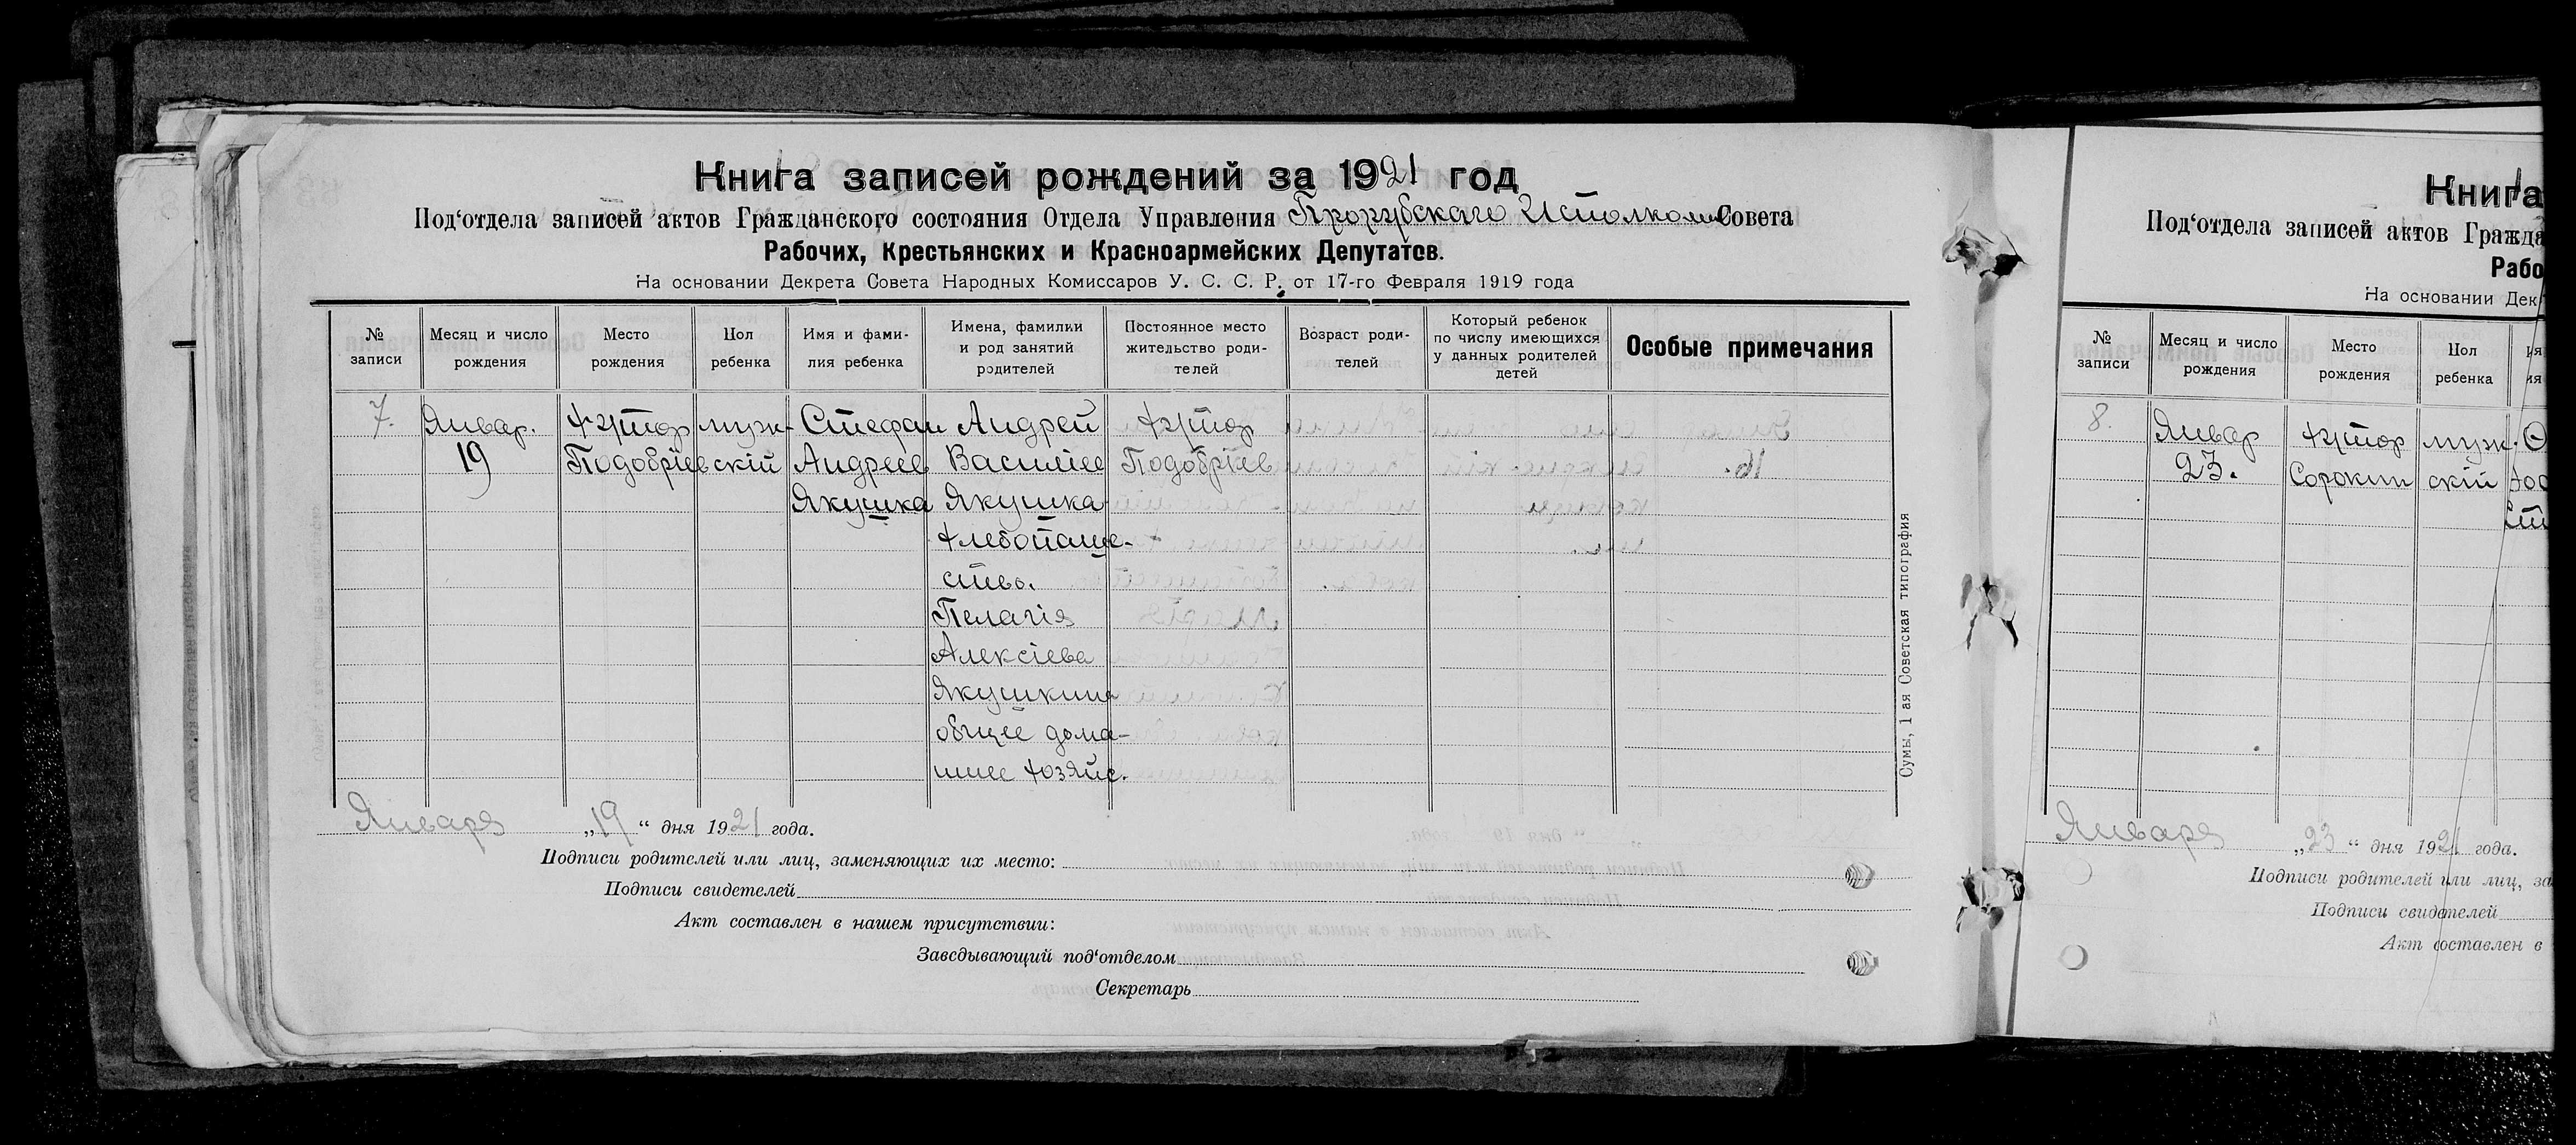 Книга записей рождений за 1921 год
Под‘отдела записей актов Гражданского состояния Отдела Управления Прорубскаго Исполкома Совета
Рабочих, Крестьянских и Красноармейских Депутатов.
На основании Декрета Совета Народных Комиссаров У. С. С. Р. от 17-го Февраля 1919 года
№ записи
Месяц и число рождения
Место рождения
Пол ребенка
Имя и фами-
лия ребенка
Имена, фамилии
и род занятий
родителей
Постоянное место
жительство роди-
телей
Возраст роди-
телей
Который ребенок
по числу имеющихся
у данных родителей
детей
Особые примечания
7. Январ. Хутор муж- Стефан Андрей Хутор
19 Подобріев скій Андреев Василіев Подобріев
Якушка Якушка
Хлебопаше-
ство.
Пелагія
Алексіева
Якушкина
общее дома-
шнее хозяйс.
Января „19“ дня 1921 года.
Подписи родителей или лиц, заменяющих их место:
Подписи свидетелей
Акт составлен в нашем присутствии:
Заведывающий под‘отделом
Секретарь
Сумы, 1 ая Советская типография
Книга
Под‘отдела записей актов Гражда
Рабо
На основании Дек
№ записи
Месяц и число рождения
Место рождения
Пол ребенка
8. Январ Хутор муж.
23. Сорокин скій
Января „23“ дня 1921 года.
Подписи родителей или лиц, за
Подписи свидетелей
Акт составлен в